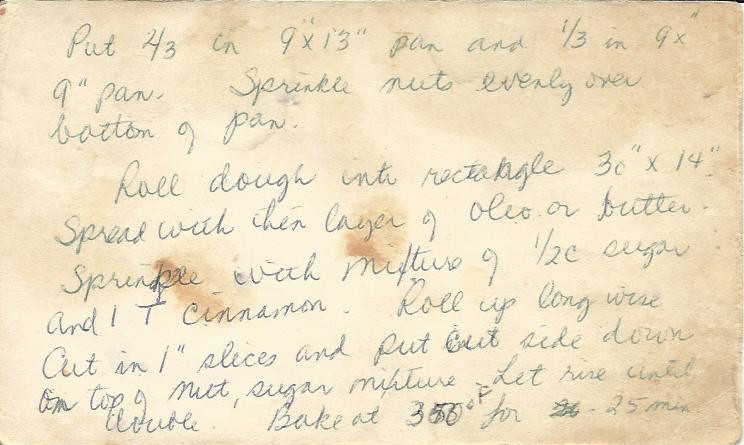 Put 2/3 in 9"x13" pan and 1/3 in 9x"
9" pan. Sprinkle nuts evenly over
bottom of pan.
Roll dough into rectangle 30" x 14"
Spread with thin layer of oleo or butter.
Sprinkle with mixture of 1/2c sugar
and 1 T cinnamon. Roll up long wise
Cut in 1" slices and put cut side down
on top of nut, sugar mixture. Let rise until
double. Bake at °F for 25 min